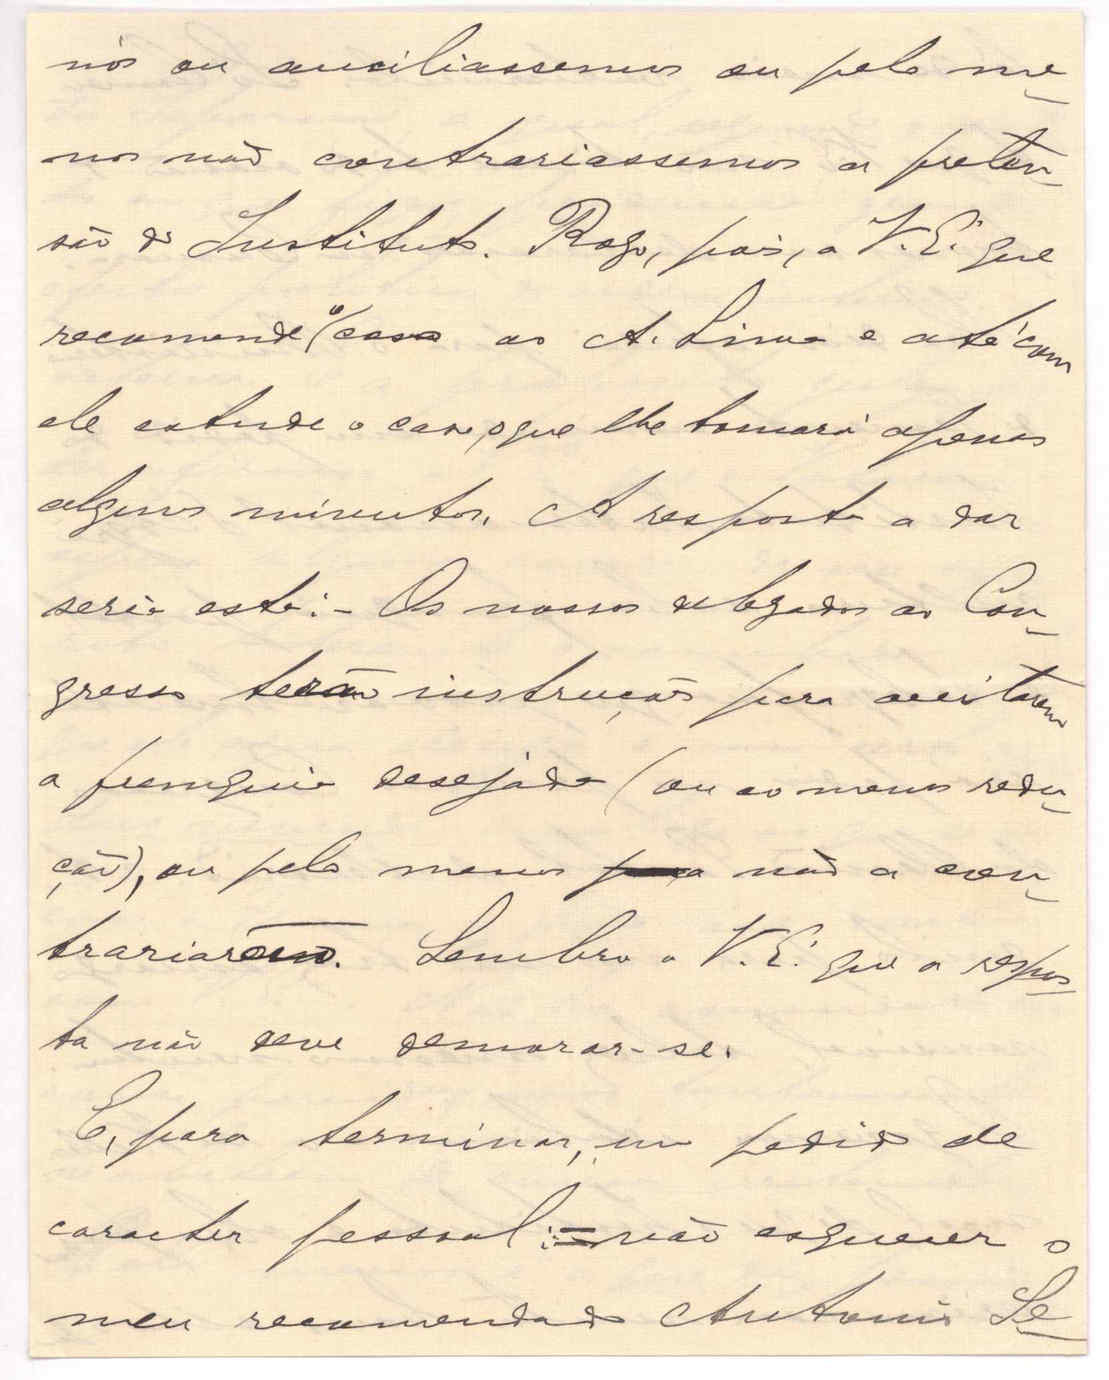 nós ou auxiliassemos ou pelo me-
nos não contrariassemos a preten-
são do Instituto. Rogo, pois, a V. E. que
recomende o caso ao A. Lima e até com
ele estude o caso, o que lhe tomará apenas
alguns minutos. A resposta a dar
seria esta: - Os nossos delegados ao Con-
gresso terão instruções para aceitarem
a franquia desejada (ou ao menos redu-
ção), ou pelo menos não a con-
trariarem. Lembro a V. E. que a respos-
ta não deve demorar-se.
E, para terminar, um pedido de
caracter pessoal: = não esquecer o
meu recomendado Antonio Le-